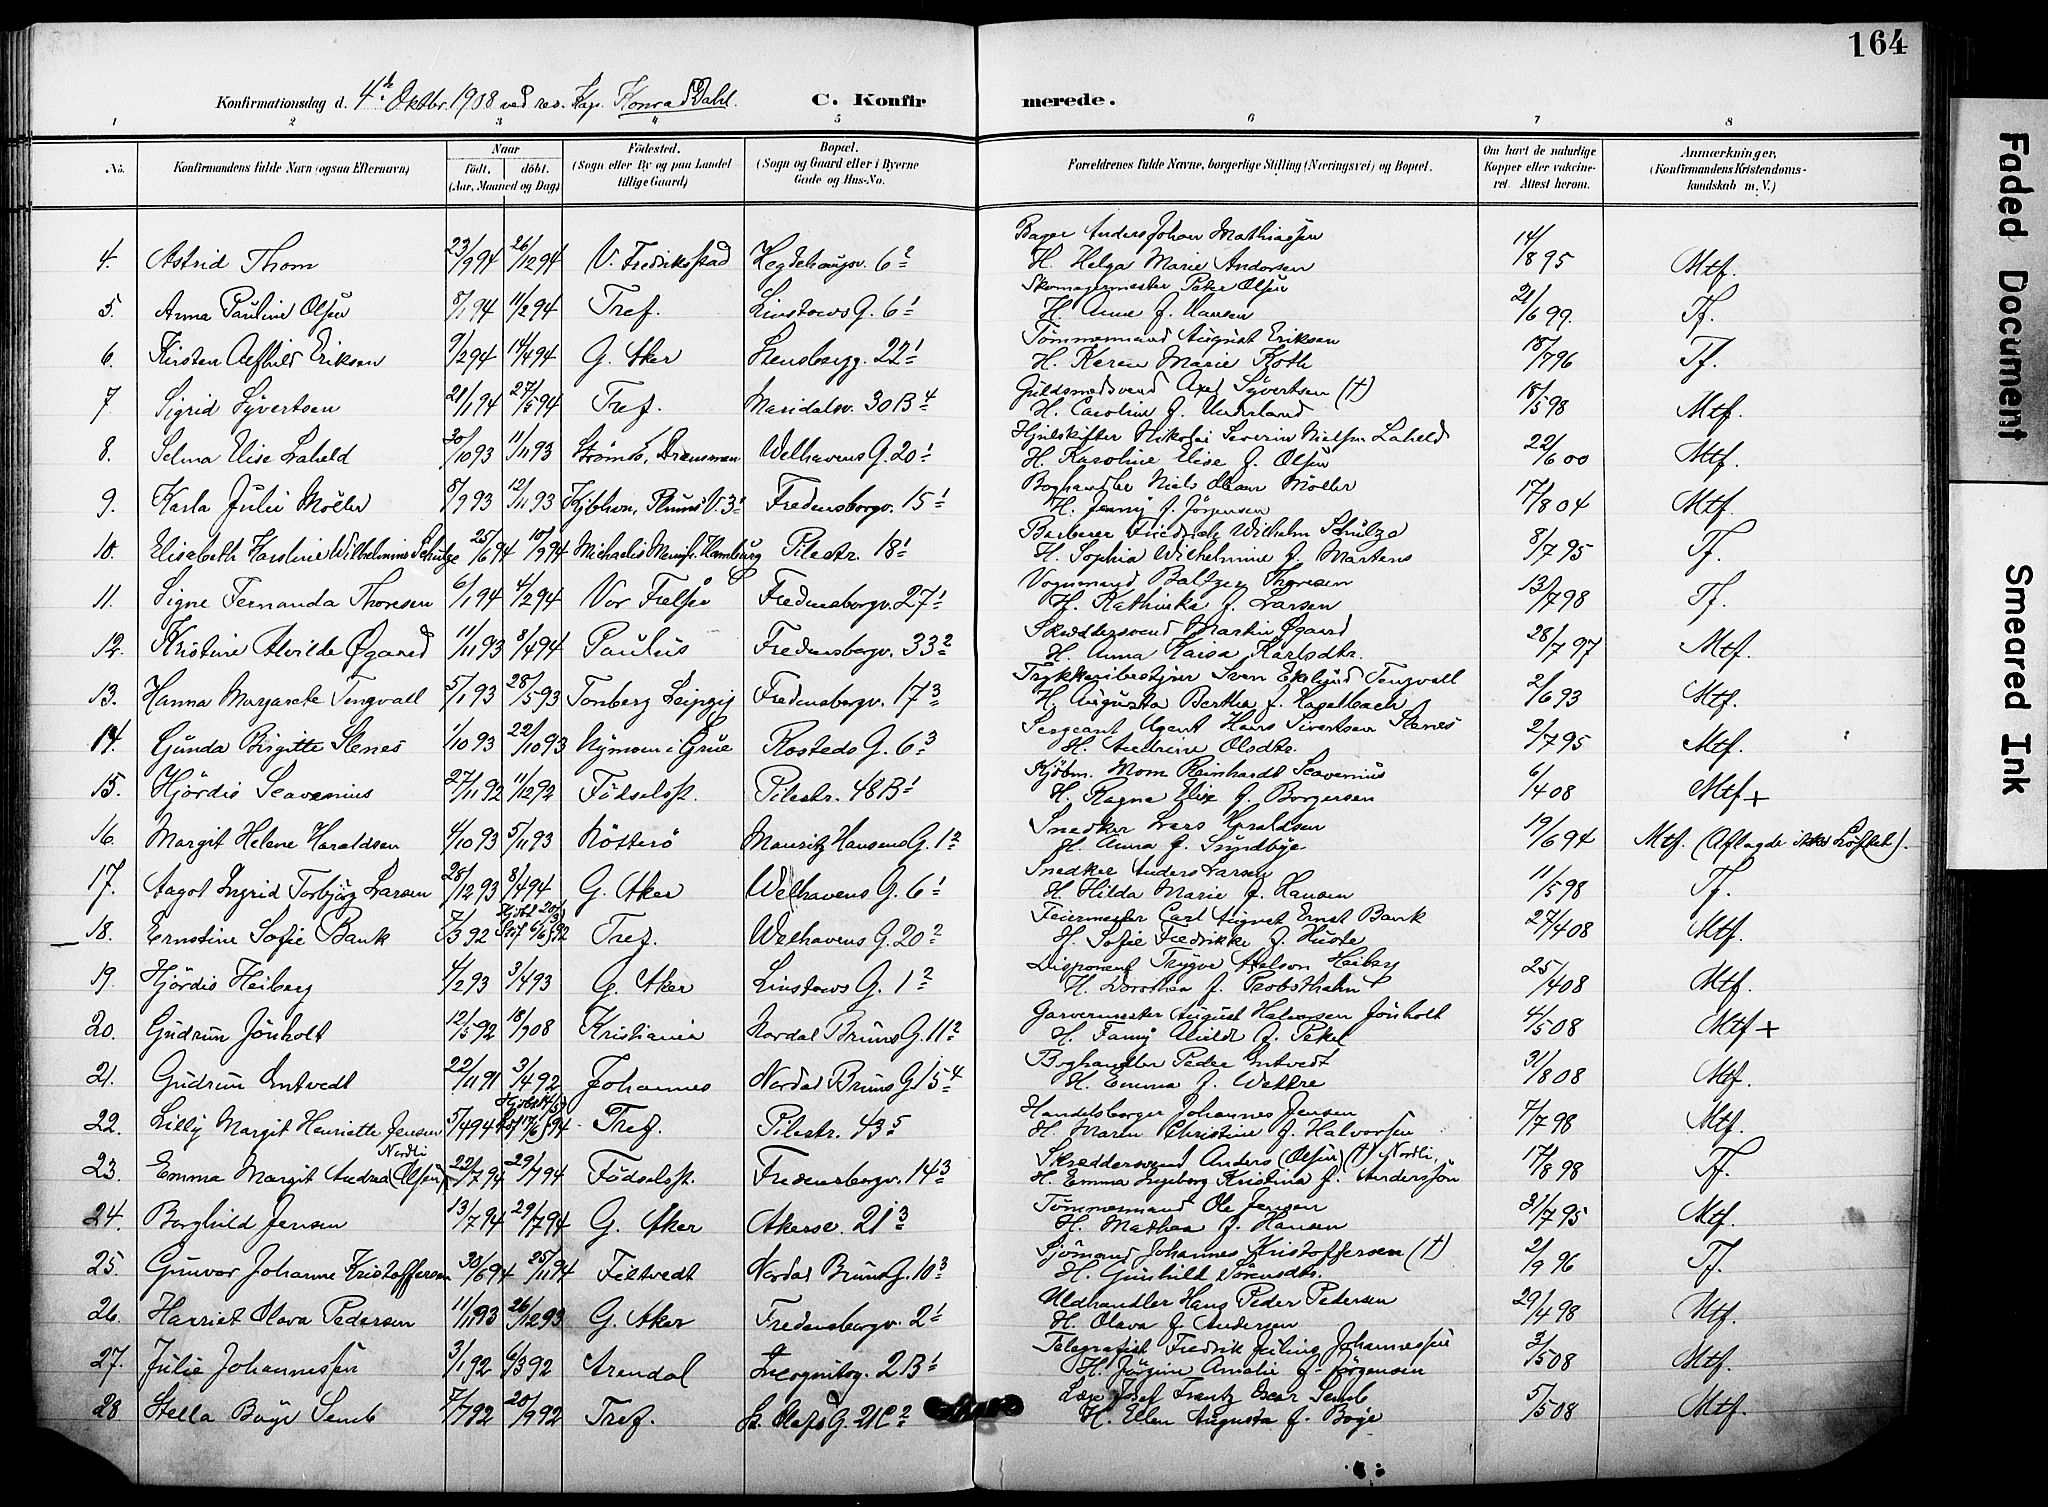 164
Konfirmationsdag d. 4de Oktbr. 1908 ved res. Kap. Konrad Dahl. C. Konfirmerede.
1 2 3 4 5 6 7 8
No. Konfirmandens fulde Navn (ogsaa Efternavn) Naar født. døbt. (Aar, Maaned og Dag) Fødested. (Sogn eller By og paa Landet tillige Gaard) Bopæl. (Sogn og Gaard eller i Byerne Gade og Hus-No. Forældrenes fulde Navne, borgerlige Stilling (Næringsvei) og Bopæl. Om havt de naturlige Kopper eller vakcineret. Attest herom. Anmærkninger. (Konfirmandens Kristendomskundskab m. V.)
Bager Anders Johan Mathiassen
4. Astrid Thom 23/9 94 26/12 94 V. Fredriksstad Hegdehaugsv. 6² H. Helga Marie Andersen 14/8 95 Mtf.
Skomagermester Peter Olsen
5. Anna Pauline Olsen 8/1 94 11/2 94 Tref. Linstows G. 6¹ H. Anne f. Hansen 21/6 99. Tf.
Tømmermand August Eriksen
6. Kirsten Aefhild Eriksen 9/2 94 14/4 94 G. Aker Stensbergg. 22¹ H. Karen Marie Koth 18/7 96 Tf.
Guldsmedsvend Axel Syvertsen (†)
7. Sigrid Syvertsen 21/1 94 27/5 94 Tref. Maridalsv. 30 B⁴ H. Caroline f. Underland 18/5 98 Mtf.
Hjulskifter Nikolai Severin Nielsen Laheld
8. Selma Elise Laheld 30/10 93 11/11 93 Strømsø, Drammen Welhavens G. 20¹ H. Karoline Elise f. Olsen 22/6 00 Mtf.
Boghandler Niels Møller
9. Karla Julie Møller 8/9 93 12/11 93 Kjbhvn, V. 3¹ Fredensborgv. 15¹ H. Jenny f. Jørgensen 17/8 04 Mtf.
Barberer Friedrich Wilhelm Schulze
10. Elisabeth Karoline Wilhelmine Schulze 25/6 94 10/9 94 Michaelis Hamburg Pilestr. 18¹ H. Sophia Wilhelmine f. Martens 8/7 95 Tf.
Vognmand Baltzer Thoresen
11. Signe Fernanda Thoresen 6/1 94 4/2 94 Vor Frelser Fredensborgv. 27¹ H. Kathinka f. Larsen 13/7 98 Tf.
Skræddersvend Martin Øgard
12. Kristine Alvilde Øgard 11/11 93 8/4 94 Paulus Fredensborgv. 33² H. Anna Kaisa Karlsdtr. 28/7 97 Mtf.
Trykkeribestyrer Sven Eklund Tengvall
13. Hanna Margarete Tengvall 5/1 93 28/5 93 Tonberg Leipzig Fredensborgv. 17³ H. Augusta Bertha f. Hagelbach 2/6 93 Mtf.
Sergeant Agent Hans Sivertsen Stenes
14. Gunda Birgitte Stenes 1/10 93 22/10 93 Nymoen i Grue Rosteds G. 6³ H. Andrine Olsdtr. 2/7 95 Mtf.
Kjøbm. Mom Reinhardt Scavenius
15. Hjørdis Scavenius 27/11 92 11/12 92 Fødselsst. Pilestr. 48 B¹ H. Ragna Elise f. Borgersen 6/4 08 Mtf +
Snedker Lars Haraldsen
16. Margit Helene Haraldsen 4/10 93 5/11 93 Nøtterø Mauritz Hansens G. 1² H. Anna f. Sundbye 19/6 94 Mtf. (Aflagde ikke Løftet).
Snedker Anders Larsen
17. Aagot Ingrid Torbjørg Larsen 28/12 93 8/4 94 G. Aker Welhavens G. 6¹ H. Hilda Marie f. Hansen 11/5 98 Tf.
Feiermester Carl August Ernst Bank
18. Ernstine Sofie Bank 7/3 92 Hjdbt 20/3 Stf 6/6 92 Tref. Welhavens G. 20² H. Sofie Fredrikke f. Huste 27/4 08 Mtf.
Disponent Trygve Axelson Heiberg
19. Hjørdis Heiberg 4/2 93 3/4 93 G. Aker Linstows G. 1² H. Dorothea f. Probsthahn 25/4 08 Mtf.
Garvermester August Halvorsen Jønholt
20. Gudrun Jønholt 12/5 92 18/9 08 Kristiania Nordal Bruns G. 11² H. Fanny Alvilde f. Pekel 4/5 08 Mtf +
Boghandler Peder Entvedt
21. Gudrun Entvedt 22/11 91 3/4 92 Johannes Nordal Bruns G. 15⁴ H. Emma f. Wettre 31/8 08 Mtf.
Handelsborger Johannes Jensen
22. Lilly Margit Henriette Jensen 5/4 94 Hjdbt 14/5 Stf 17/6 94 Tref. Pilestr. 43⁵ H. Maren Christine f. Halvorsen 7/7 98 Mtf.
Nordli
Skreddersvend Anders (Olsen) (†) Nordli,
23. Emma Margit Andrea (Olsen) 22/7 94 29/7 94 Fødselsst. Fredensborgv. 14³ H. Emma Ingeborg Kristina f. Andersson 17/8 98 Tf.
Tømmermand Ole Jensen
24. Borghild Jensen 13/7 94 29/7 94 G. Aker Akersv. 21³ H. Mathea f. Hansen 31/7 95 Mtf.
Sjømand Johannes Kristoffersen (†)
25. Gunvor Johanne Kristoffersen 30/6 94 25/11 94 Filtvedt Nordal Bruns G. 10³ H. Gunhild Sørensdtr. 2/9 96 Tf.
Uldhandler Hans Peder Pedersen
26. Harriet Olava Pedersen 11/11 93 26/12 93 G. Aker Fredensborgv. 2¹ H. Olava f. Andersen 29/4 98 Mtf.
Telegrafist Fredrik Juling Johannessen
27. Julie Johannessen 3/1 92 6/3 92 Arendal Incognitog. 2 B¹ H. Jørgine Amalie f. Jørgensen 3/5 08 Mtf.
Læge Josef Frantz Oscar Semb
28 Stella Bøye Semb 7/7 92 20/9 92 Tref. St. Olafs G. 21 C² H. Ellen Augusta f. Bøye 5/5 08 Mtf.
Faded Document
Smeared Ink